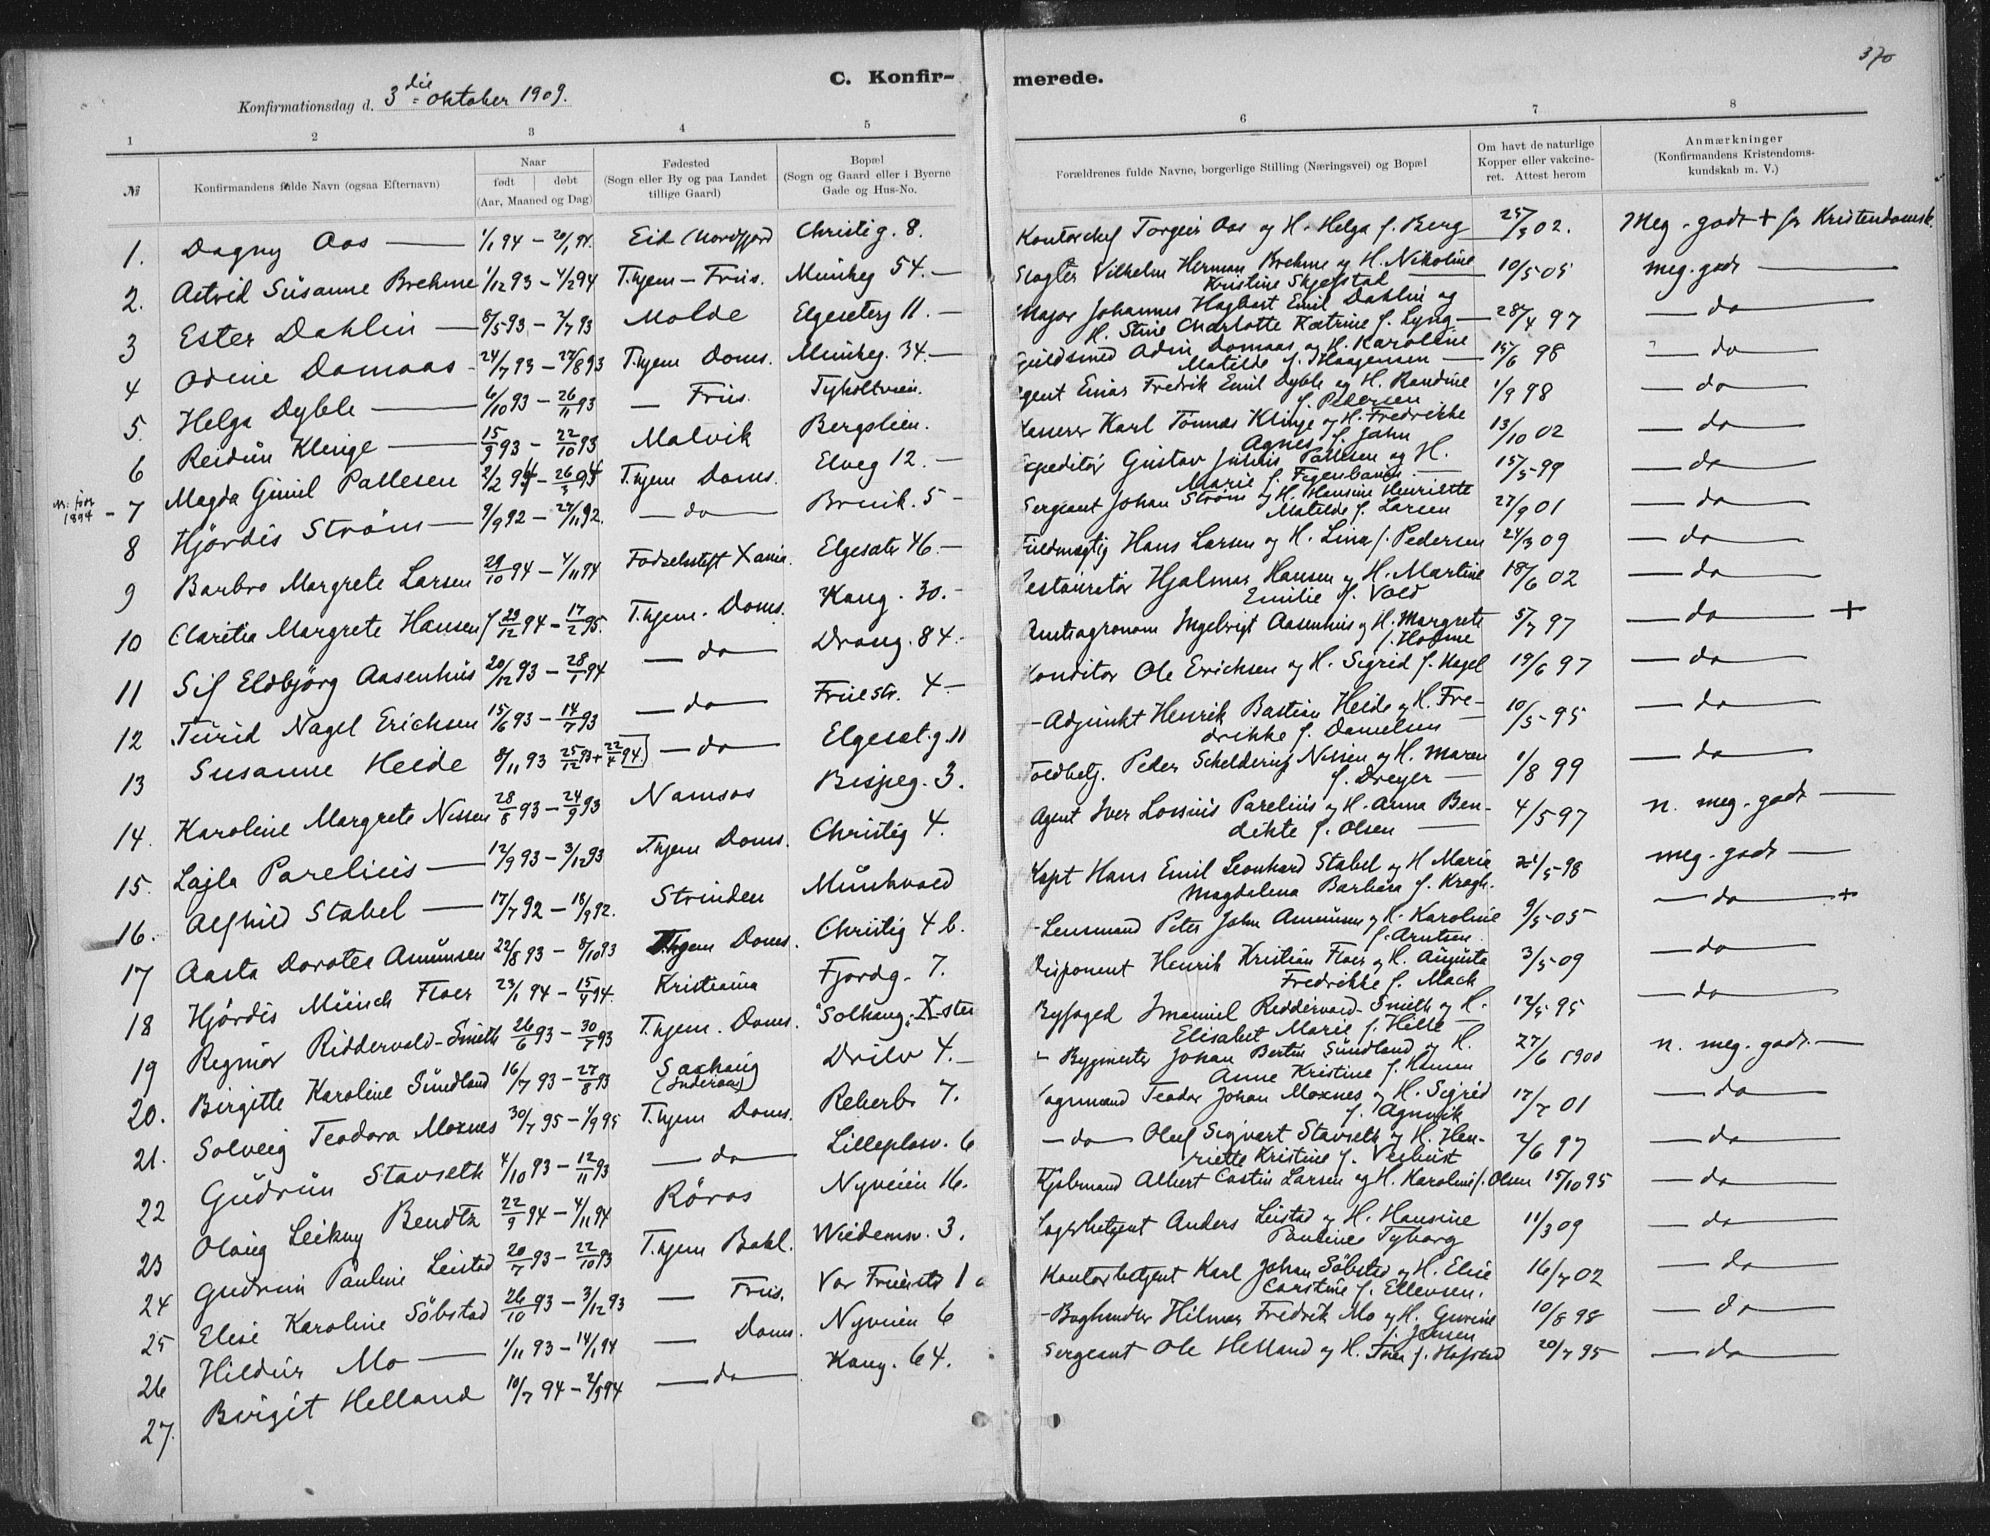 370
C. Konfir- merede.
Konfirmationsdag d. 3die oktober 1909.
1 2 3 4 5 6 7 8
№ Konfirmandens fulde Navn (ogsaa Efternavn) Naar født døbt (Aar, Maaned og Dag) Fødested (Sogn eller By og paa Landet tillige Gaard) Bopæl (Sogn og Gaard eller i Byerne Gade og Hus-No. Forældrenes fulde Navne, borgerlige Stilling (Næringsvei) og Bopæl Om havt de naturlige Kopper eller vakcineret. Attest herom Anmærkninger (Konfirmandens Kristendomskundskab m. V.)
1. Dagny Aas 1/1 94 – 20/1 94. Eid (Nordfjord Christig. 8. Kontorchef Torgeir Aas og H. Helga f. Berg 25/3 02. Meg. godt + for Kristendomsk.
2. Astrid Susanne Brehme 1/12 93 – 4/2 94 T.hjem – Frus. Munkeg 54. Slagter Vilhelm Herman Brehme og H. Nikoline Kristine Skjefstad 10/5 05 meg. godt
3 Ester Dahlin 8/5 93 – 2/7 93 Molde Elgeseterg 11. Major Johannes Hagbart Emil Dahlin og H. Stine Charlotte Katrine f. Lyng 28/4 97 do
4 Odine Damaas 24/7 93 – 27/8 93 T.hjem Doms. Munkeg. 34. Guldsmed Adin Damaas og H. Karoline Matilde f. Haagensen 15/6 98 do
5. Helga Dyble 6/10 93 – 26/11 93 – Frus. Tyholtveien. Agent Einar Fredrik Emil Dyble og H. Randine f. Pedersen 1/9 98 do
6 Reidun Klinge 15/9 93 – 22/10 93 Malvik Bergslien. Kasserer Karl Tönnes Klinge og H. Fredrikke Agnes f. Jahn 13/10 02 do
7 Magda Gunil Pallesen 2/2 94 – 26/3 94 T.hjem Doms. Elveg 12. Expeditör Gustav Julius Pallesen og H. Marie f. Figenbaum 15/5 99 do
1894
8 Hjördis Ström 9/9 92 – 27/11 92. do Brink. 5 Sergeant Johan Ström og H. Hansine Henriette Matilde f. Larsen 27/9 01 do
9 Barbro Margrete Larsen 29/10 94 – 4/11 94 Födselsstift. Xania. Elgesetr 46. Fuldmægtig Hans Larsen og H. Lina f. Pedersen 24/3 09 do
10 Claritta Margrete Hansen 29/12 94 – 17/2 95. T.hjem. Doms. Kong. 30. Restauratör Hjalmar Hansen og H. Martine Emilie f. Vold 18/6 02 do
11 Sif Eldbjörg Aasenhus 20/12 93 – 28/1 94 do Drong. 84. Amtsagronom Ingebrigt Aasenhus og H. Margrete f. Holme 5/7 97 do +
12 Turid Nagel Erichsen 15/6 93 – 14/7 93 do Fruestr. 4. Konditor Ole Erichsen og H. Sigrid f. Nagel 19/6 97 do
13 Susanne Heide 8/11 93 25/12 93 + 22/4 94. do Elgeset.g. 11 Adjunkt Henrik Bastian Heide og H. Fredrikke f. Danielsen 10/5 95 do
14. Karoline Margrete Nissen 28/8 93 – 24/9 93 Namsos Bispeg. 3. Toldbetj. Peder Scheldering Nissen og H. Maren f. Dreyer 1/8 99 do
15. Lajla Parelius 12/9 93 – 3/12 93 T.hjem Doms. Christig 4. Agent Iver Lossius Parelius og H. Anna Bendikte f. Olsen 4/5 97 n. meg. godt
16. Alfhild Stabel 17/7 92 – 18/9 92. Strinden Munkvold Kapt Hans Emil Leonhard Stabel og H Marie Magdalena Barbara f. Kragh. 21/5 98 meg. godt
17 Aasta Dorotea Amunsen 22/8 93 – 8/10 93 T.hjem Doms. Christig 4 b. Lensmand Peter John Amunsen og H. Karoline f. Arntsen 9/5 05 do +
18 Hjördis Münch Floer 23/1 94 – 15/4 94. Kristiania Fjordg. 7. Disponent Henrik Kristian Floer og H. Augusta Fredrikke f. Mack 3/5 09 do
19 Regmor Riddervold-Smith 26/6 93 – 30/7 93 T.hjem. Doms. Solhaug. Byfoged Imanuel Riddervold-Smith og H. Elisabet Marie f. Hille 12/5 95 do
20. Birgitte Karoline Sundland 16/7 93 – 27/8 93 Saxhaug (Inderöen) Drilv 4. Bygmester Johan Bertin Sundland og H. Anne Kristine f. Hansen 27/6 1900 n. meg. godt.
21. Solveig Teodora Moxnes 30/7 95 – 1/9 95 T.hjem Doms. Reberb. 7. Vognmand Teodor Johan Moxnes og H. Sigrid f. Agnvik 17/7 01 do
22 Gudrun Stavseth 4/10 93 – 12/11 93 do Lilleplasv. 6 do Oluf Sigvart Stavseth og H. Henriette Kristine f. 2/6 97 do
23 Olaug Leikny Bendtz 22/9 94 – 4/11 94 Röros Nyveien 16. Kjöbmand Albert Castin Larsen og H. Karoline f. Olsen 15/10 95 do
24 Gudrun Pauline Leistad 20/7 93 – 22/10 93 T.hjem Bakl. Wiedemsv. 3. Lagerbetjent Anders Leistad og H. Hansine Pauline f. Tyborg 11/3 09 do
25 Elise Karoline Söbstad 26/10 93 – 3/12 93 – Frus. Vor Frues str 1 Kontorbetjent Karl Johan Söbstad og H. Elise Carstine f. Ellevsen. 16/7 02 do
26 Hildur Mo 1/11 93 – 14/1 94 – Doms. Nyveien 6 Boghandler Hilmar Fredrik Mo og H. Gurine f. Jensen 10/8 98 do
27. Birgit Helland 10/7 94 – 2/9 94 do Kong. 64. Sergeant Ole Helland og H. f. Hofstad 20/7 95 do